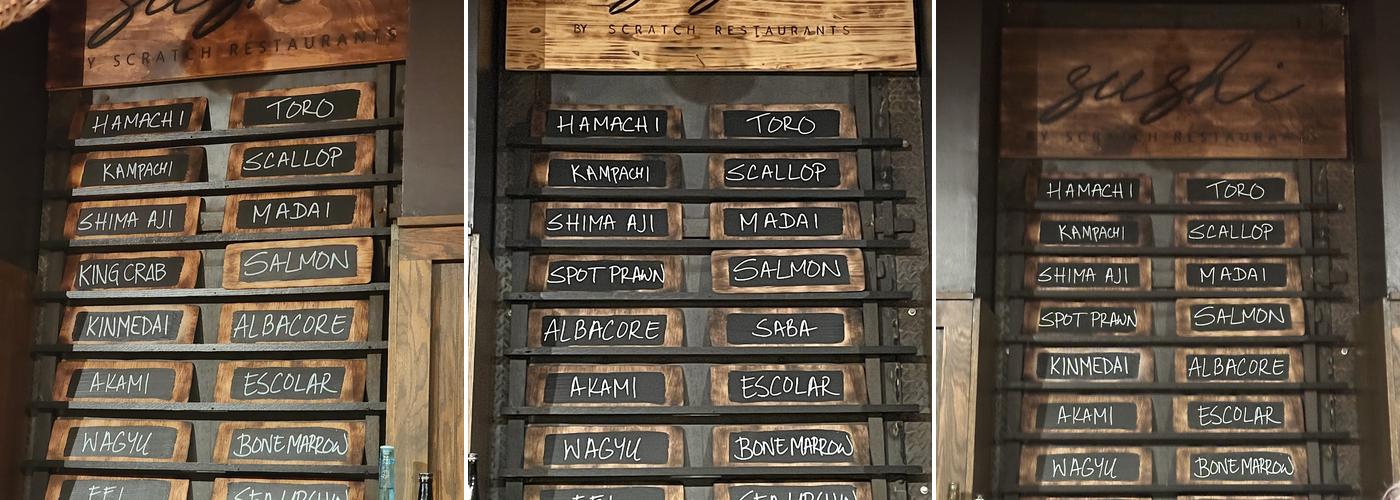 sushi
BY SCRATCH RESTAURANTS
HAMACHI TORO
KAMPACHI SCALLOP
SHIMA AJI MADAI
KING CRAB SALMON
KINMEDAI ALBACORE
AKAMI ESCOLAR
WAGYU BONE MARROW
EEL SEA URCHIN
BY SCRATCH RESTAURANTS
HAMACHI TORO
KAMPACHI SCALLOP
SHIMA AJI MADAI
SPOT PRAWN SALMON
ALBACORE SABA
AKAMI ESCOLAR
WAGYU BONE MARROW
EEL SEA URCHIN
sushi
BY SCRATCH RESTAURANTS
HAMACHI TORO
KAMPACHI SCALLOP
SHIMA AJI MADAI
SPOT PRAWN SALMON
KINMEDAI ALBACORE
AKAMI ESCOLAR
WAGYU BONE MARROW